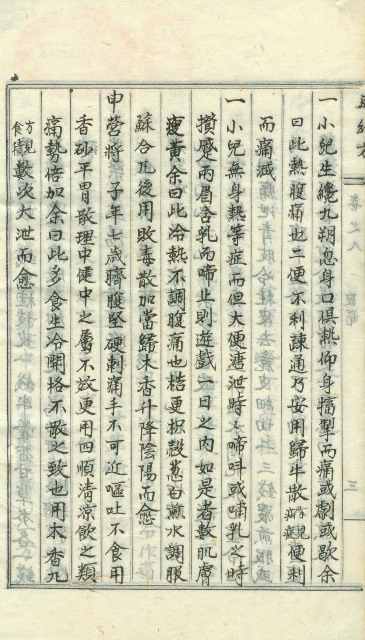 一小兒生纔九朔忽身口俱熱仰身搐掣而痛或劇或歇余
曰此熱腹痛也二便不利疎通乃安用歸牛散方見痘症便利
而痛減
一小兒無身熱等症而但大便溏泄時時啼呌或哺乳之時
攢蹙兩眉含乳而啼止則遊戲一日之內如是者數肌膚
瘦黃余曰此冷熱不調腹痛也桔更枳殼葱白煎水調服
蘇合元後用敗毒散加當歸木香升降陰陽而愈
申營將 子年七歲臍腹堅硬刺痛手不可近嘔吐不食用
香砂平胃散理中建中之屬不效更用四順清凉飮之類
痛勢倍加余曰此多食生冷關格不散之致也用木香丸
方見食積數次大泄而愈